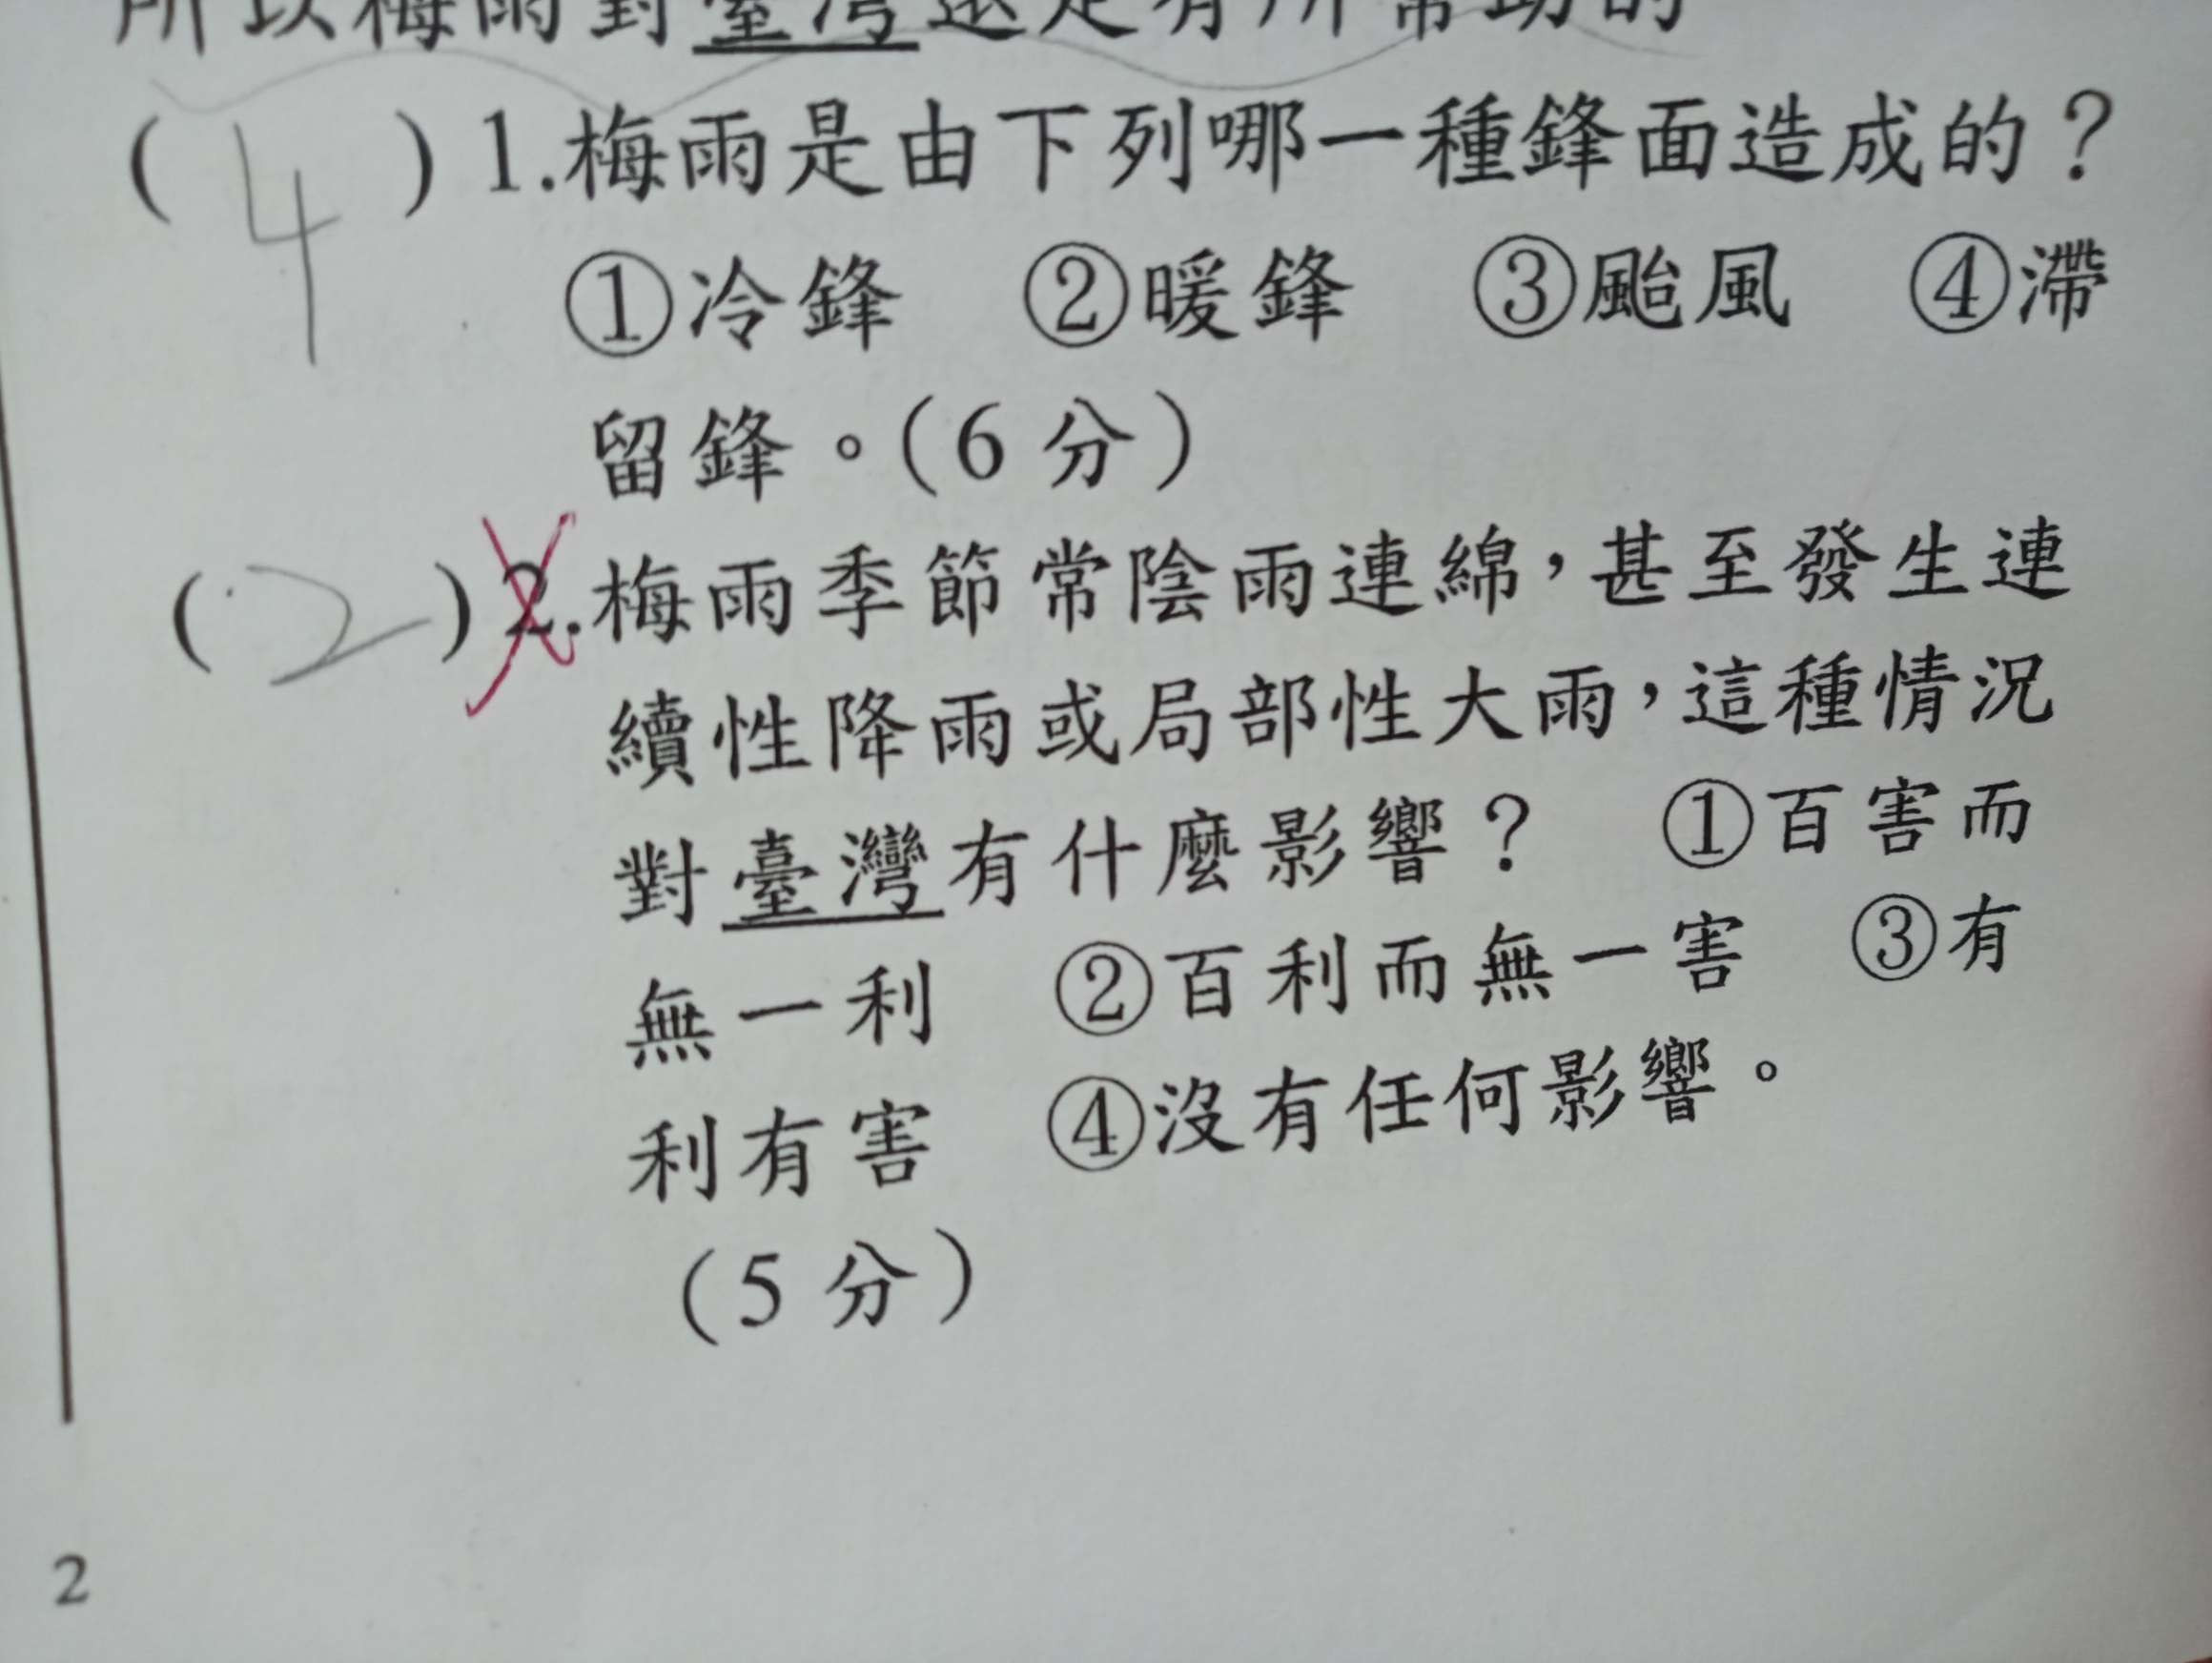 所以梅雨對臺灣還是有所幫助的
( 4 ) 1.梅雨是由下列哪一種鋒面造成的？
①冷鋒 ②暖鋒 ③颱風 ④滯
留鋒。(6 分)
( 2 ) 2.梅雨季節常陰雨連綿，甚至發生連
續性降雨或局部性大雨，這種情況
對臺灣有什麼影響？ ①百害而
無一利 ②百利而無一害 ③有
利有害 ④沒有任何影響。
(5 分)
2